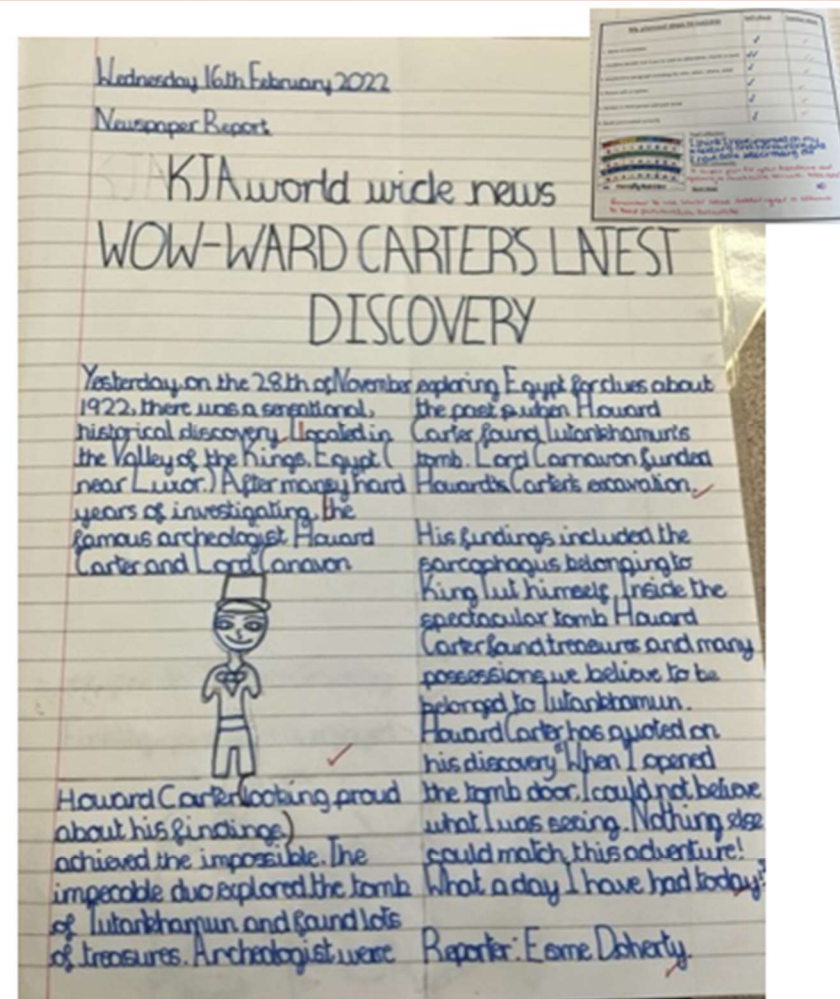 Wednesday 16th February 2022
Newspaper Report
KJA world wide news
WOW-WARD CARTER'S LATEST
DISCOVERY
Yesterday, on the 28th of November
1922, there was a sensational,
historical discovery. Located in
the Valley of the Kings, Egypt (
near Luxor.) After many hard
years of investigating, the
famous archeologist Howard
Carter and Lord Canavon
Howard Carter (looking proud
about his findings)
achieved the impossible. The
impecable duo explored the tomb
of Tutankhamun and found lots
of treasures. Archeologist were
exploring Egypt for clues about
the past when Howard
Carter found Tutankhamun's
tomb. Lord Carnavon funded
Howard's Carter's excavation.
His findings included the
sarcophagus belonging to
King Tut himself. Inside the
spectacular tomb Howard
Carter found treasures and many
possessions we believe to be
belonged to Tutankhamun.
Howard Carter has quoted on
his discovery "When I opened
the tomb door, I could not believe
what I was seeing. Nothing else
could match this adventure!
What a day I have had today!"
Reporter: Esme Doherty.